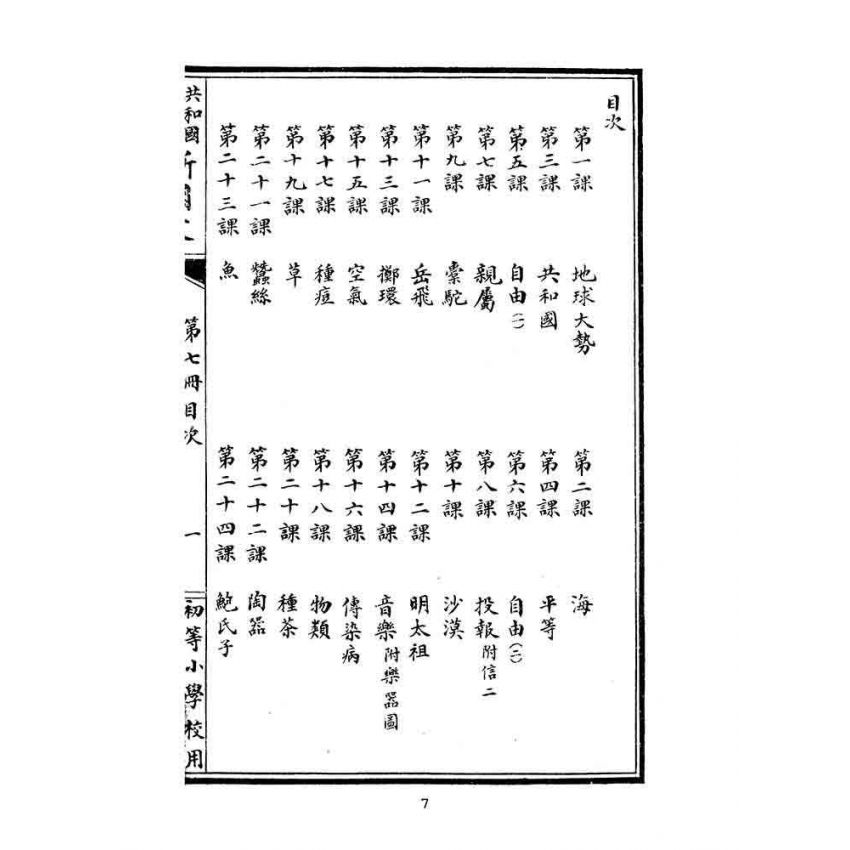 目次
第一課 地球大勢
第二課 海
第三課 共和國
第四課 平等
第五課 自由(一)
第六課 自由(二)
第七課 親屬
第八課 投報附信二
第九課 橐駝
第十課 沙漠
第十一課 岳飛
第十二課 明太祖
第十三課 擲環
第十四課 音樂附樂器圖
第十五課 空氣
第十六課 傳染病
第十七課 種痘
第十八課 物類
第十九課 草
第二十課 種茶
第二十一課 蠶絲
第二十二課 陶器
第二十三課 魚
第二十四課 鮑氏子
共和國新國文
第七冊目次
一
初等小學校用
7